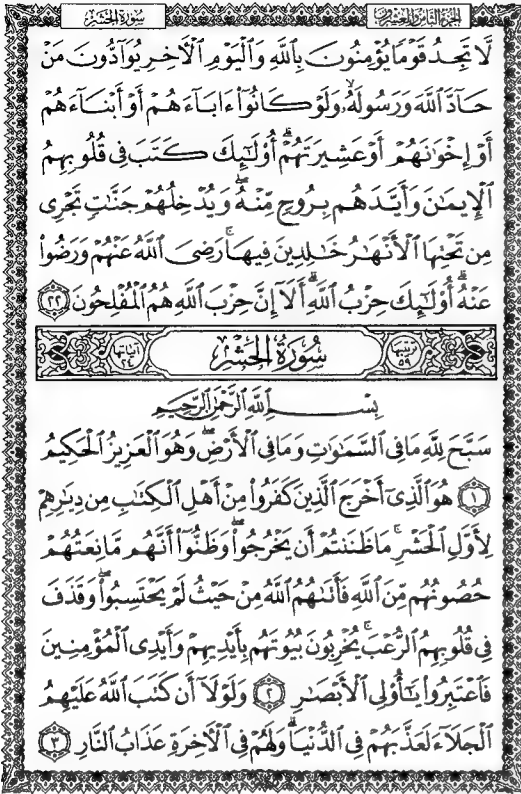 سُورَةُ الحَشْرِ
الجزء الثامن والعشرون
لَّا تَجِدُ قَوْمًا يُؤْمِنُونَ بِاللَّهِ وَالْيَوْمِ الْآخِرِ يُوَآدُّونَ مَنْ
حَآدَّ اللَّهَ وَرَسُولَهُۥ وَلَوْ كَانُوٓا۟ ءَابَآءَهُمْ أَوْ أَبْنَآءَهُمْ
أَوْ إِخْوَٰنَهُمْ أَوْ عَشِيرَتَهُمْ ۚ أُو۟لَـٰٓئِكَ كَتَبَ فِى قُلُوبِهِمُ
الْإِيمَـٰنَ وَأَيَّدَهُم بِرُوحٍ مِّنْهُ ۖ وَيُدْخِلُهُمْ جَنَّـٰتٍ تَجْرِى
مِن تَحْتِهَا الْأَنْهَـٰرُ خَـٰلِدِينَ فِيهَا ۚ رَضِىَ اللَّهُ عَنْهُمْ وَرَضُوا۟
عَنْهُ ۚ أُو۟لَـٰٓئِكَ حِزْبُ اللَّهِ ۚ أَلَآ إِنَّ حِزْبَ اللَّهِ هُمُ الْمُفْلِحُونَ ٢٢
ترتيبها ٥٩ سُورَةُ الحَشْرِ آياتها ٢٤
بِسْمِ اللَّهِ الرَّحْمَـٰنِ الرَّحِيمِ
سَبَّحَ لِلَّهِ مَا فِى السَّمَـٰوَٰتِ وَمَا فِى الْأَرْضِ ۖ وَهُوَ الْعَزِيزُ الْحَكِيمُ
١ هُوَ الَّذِىٓ أَخْرَجَ الَّذِينَ كَفَرُوا۟ مِنْ أَهْلِ الْكِتَـٰبِ مِن دِيَـٰرِهِمْ
لِأَوَّلِ الْحَشْرِ ۚ مَا ظَنَنتُمْ أَن يَخْرُجُوا۟ ۖ وَظَنُّوٓا۟ أَنَّهُم مَّانِعَتُهُمْ
حُصُونُهُم مِّنَ اللَّهِ فَأَتَىٰهُمُ اللَّهُ مِنْ حَيْثُ لَمْ يَحْتَسِبُوا۟ ۖ وَقَذَفَ
فِى قُلُوبِهِمُ الرُّعْبَ ۚ يُخْرِبُونَ بُيُوتَهُم بِأَيْدِيهِمْ وَأَيْدِى الْمُؤْمِنِينَ
فَاعْتَبِرُوا۟ يَـٰٓأُو۟لِى الْأَبْصَـٰرِ ٢ وَلَوْلَآ أَن كَتَبَ اللَّهُ عَلَيْهِمُ
الْجَلَآءَ لَعَذَّبَهُمْ فِى الدُّنْيَا ۖ وَلَهُمْ فِى الْآخِرَةِ عَذَابُ النَّارِ ٣